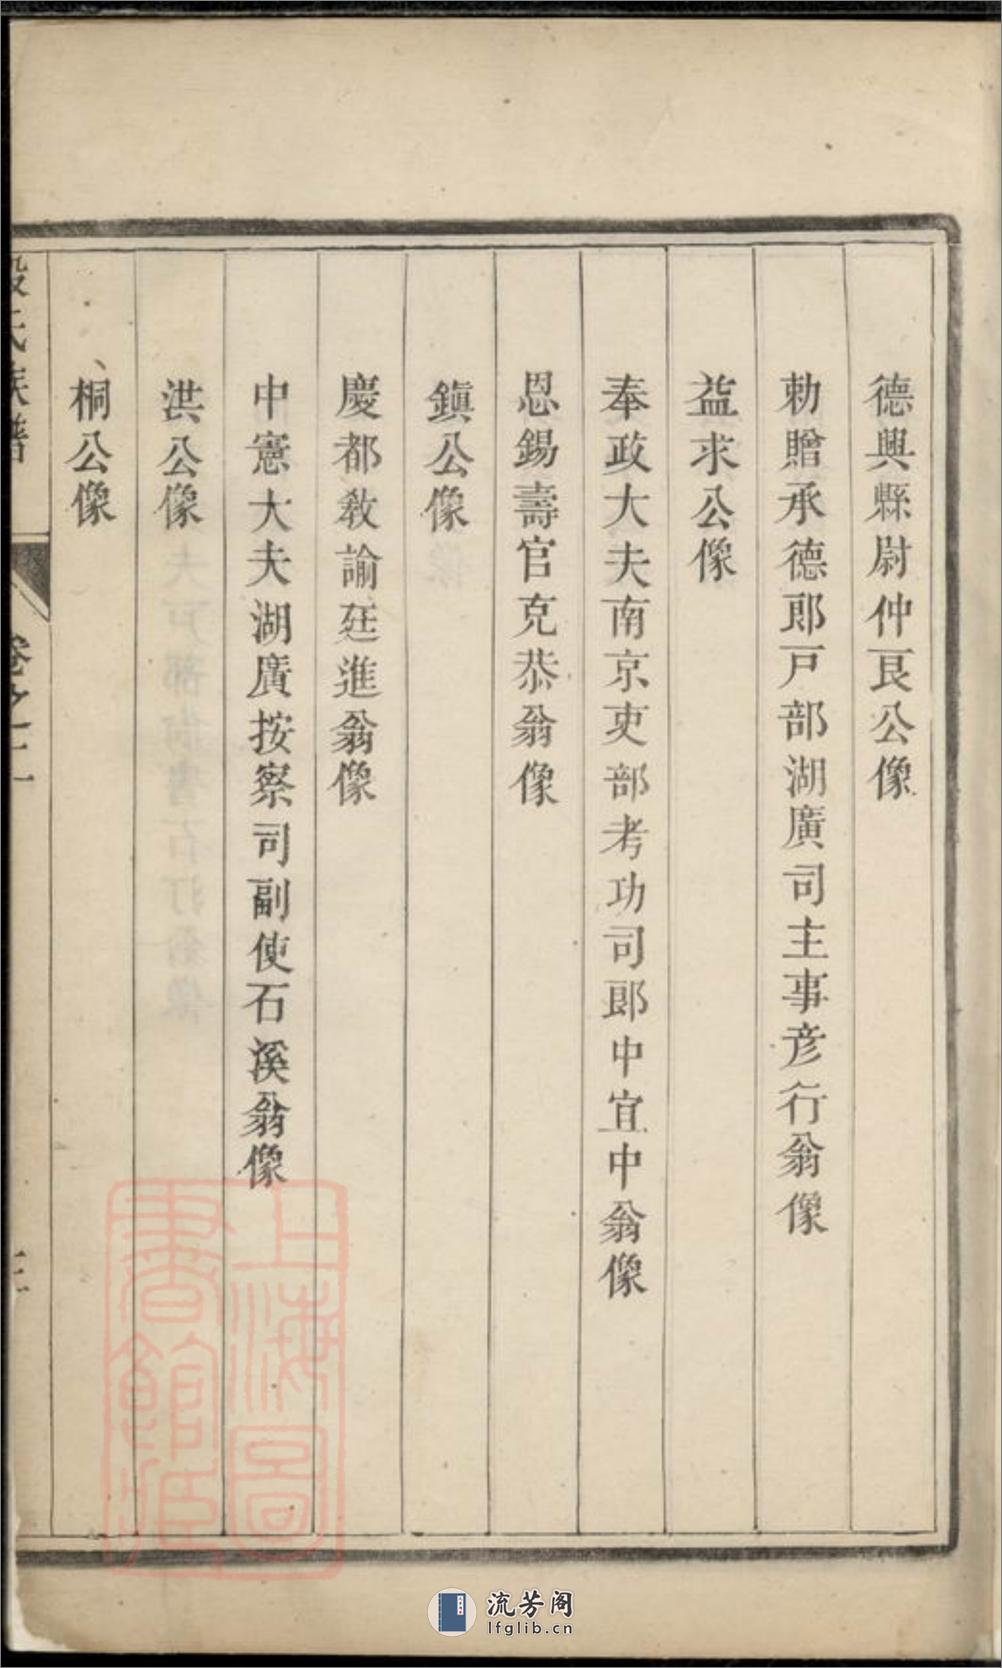 德興縣尉仲艮公像
勅贈承德郎戸部湖廣司主事彦行翁像
益求公像
奉政大夫南京吏部考功司郎中宜中翁像
恩錫壽官克恭翁像
鎮公像
慶都教諭廷進翁像
中憲大夫湖廣按察司副使石溪翁像
洪公像
桐公像
氏族譜
卷之二
三
上海圖書館藏
流芳阁
lfglib.cn